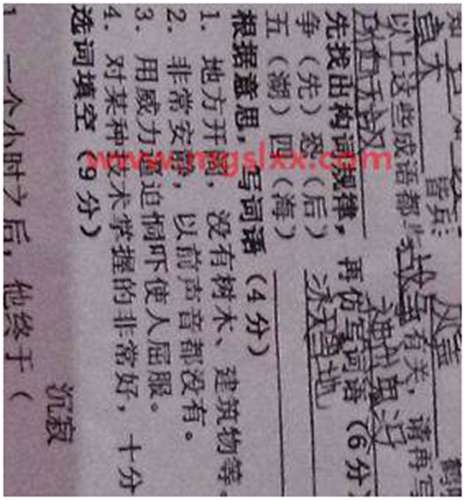 皆兵:
以上这些成语都与战争有关,请再写
神出鬼没
先找出构词规律,再仿写词语(6分
争(先)恐(后) 冰天雪地
五(湖)四(海)
根据意思,写词语(4分)
1. 地方开阔,没有树木、建筑物等。
2. 非常安静,以前声音都没有。
3. 用威力逼迫恫吓使人屈服。
4. 对某种技术掌握的非常好,十分
选词填空(9分)
沉寂
一个小时之后,他终于(
www.mgslxx.com